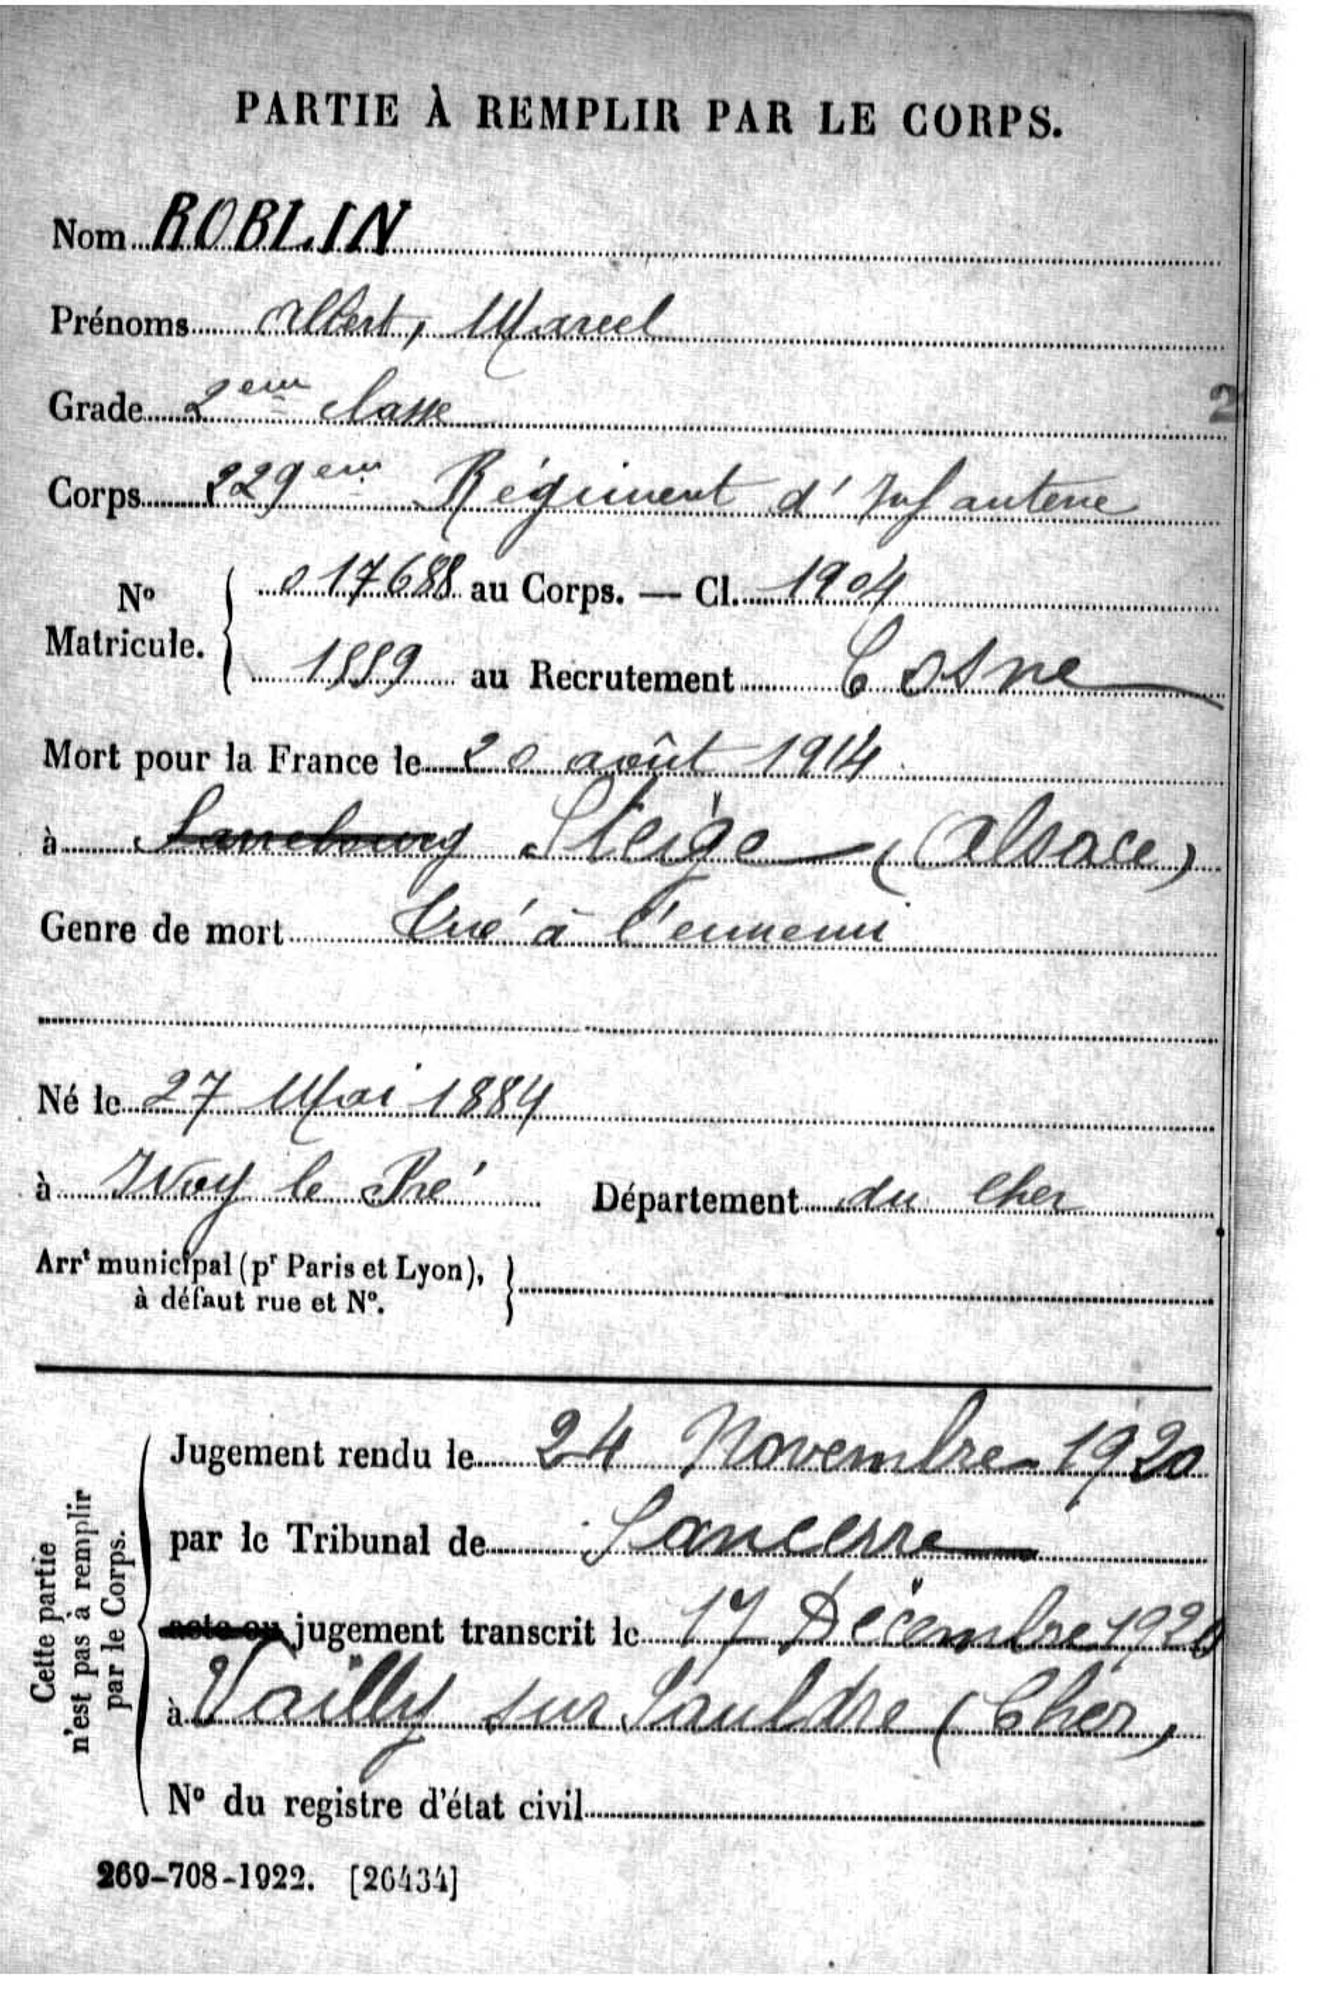 PARTIE À REMPLIR PAR LE CORPS.
Nom ROBLIN
Prénoms Albert, Marcel
Grade 2eme classe
2
Corps 229eme Régiment d'Infanterie
No Matricule. { 017688 au Corps. — Cl. 1904
1889 au Recrutement Cosne
Mort pour la France le 20 août 1914
à Sarrebourg Steige (Alsace)
Genre de mort Tué à l'ennemi
Né le 27 Mai 1884
à Ivoy le Pré Département du Cher
Arrt municipal (pr Paris et Lyon), }
à défaut rue et No.
Cette partie
n'est pas à remplir
par le Corps.
Jugement rendu le 24 Novembre 1920
par le Tribunal de Sancerre
acte ou jugement transcrit le 17 Décembre 1920
à Vailly sur Sauldre (Cher)
No du registre d'état civil
269-708-1922. [26434]